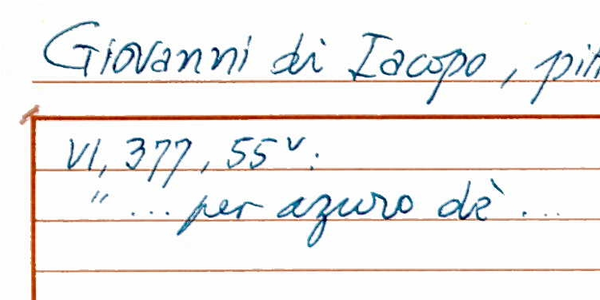 Giovanni di Iacopo, pitt
VI, 377, 55v:
"... per azuro dè ...